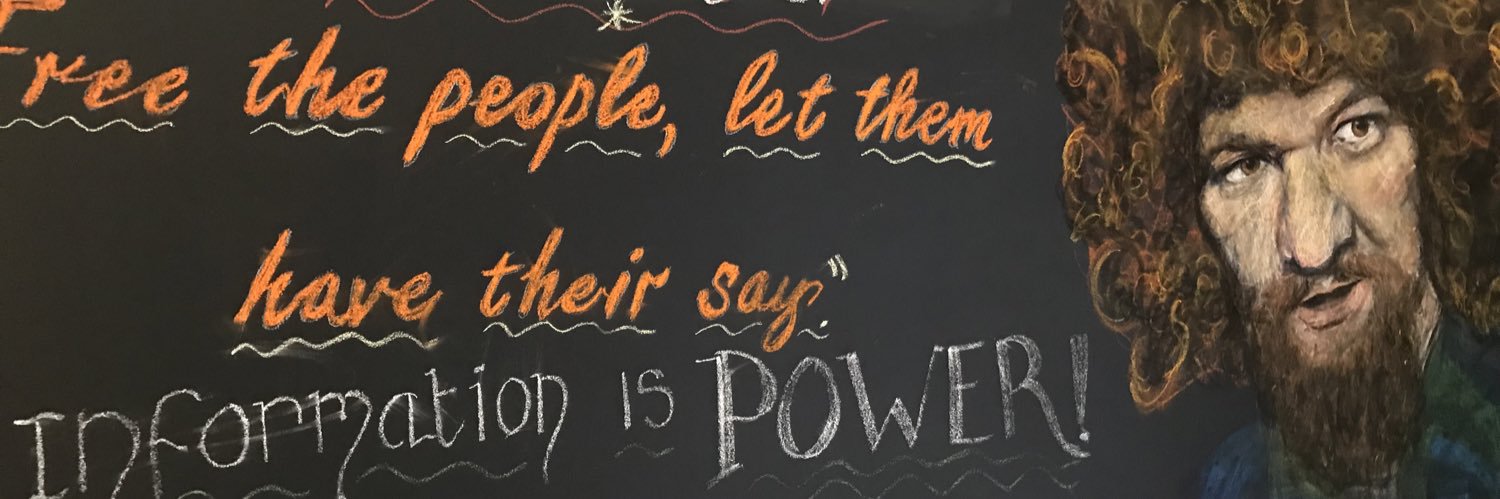 Free the people, let them
have their say."
Information is POWER!